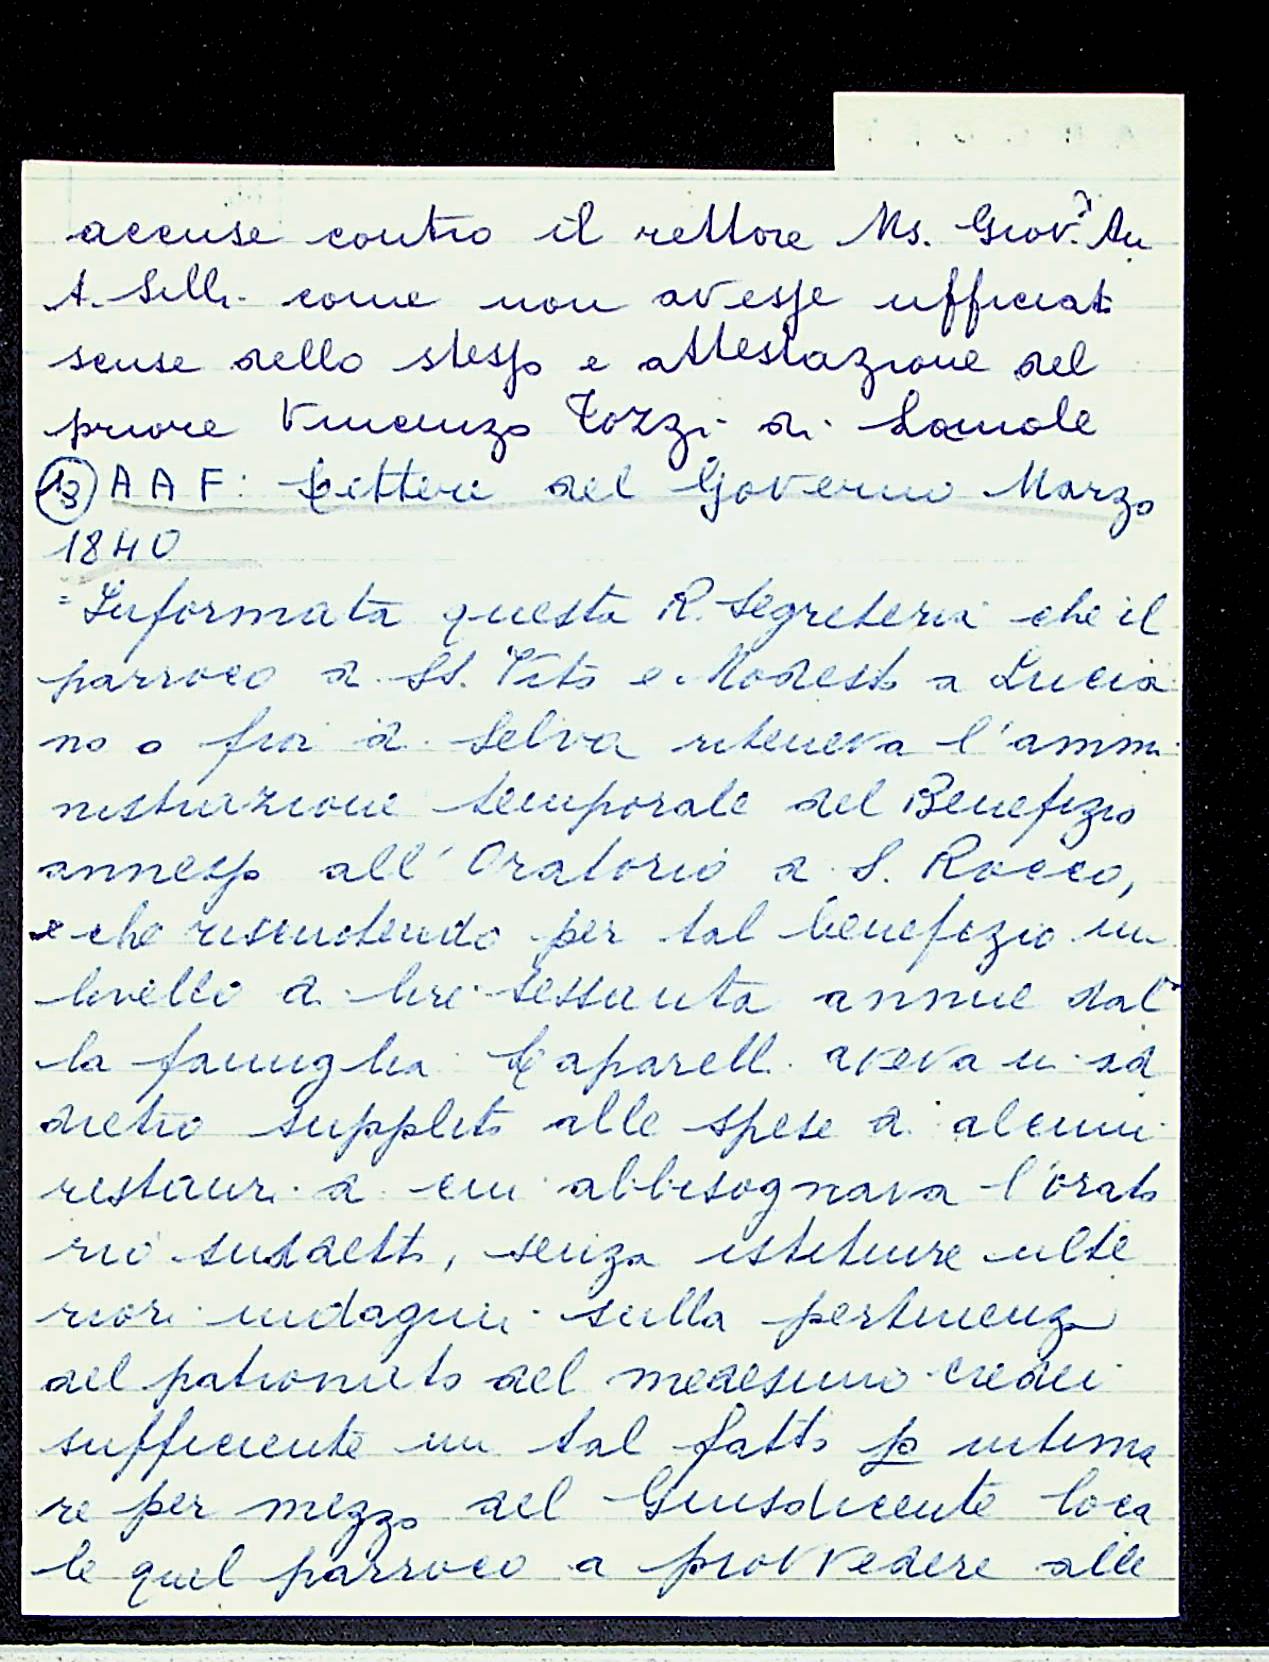 accuse contro il rettore Ms. Giov. An
t. Silli come non avesse ufficiato
scuse dello stesso e attestazione del
priore Vincenzo Tozzi di Lamole
13 AAF: Lettere del Governo Marzo
1840
= Informata questa R. Segreteria che il
parroco di SS. Vito e Modesto a Lucia
no o fra di Selva riteneva l'ammi
nistrazione temporale del Benefizio
annesso all'Oratorio di S. Rocco,
e che riscuotendo per tal benefizio un
livello di lire sessanta annue dal
la famiglia Caparelli aveva in ad
dietro supplito alle spese di alcuni
restauri di cui abbisognava l'orato
rio suddetto, senza istituire ulte
riori indagini sulla pertinenza
del patronato del medesimo credei
sufficiente un tal fatto p intima
re per mezzo del Giusdicente loca
le quel parroco a provvedere alle